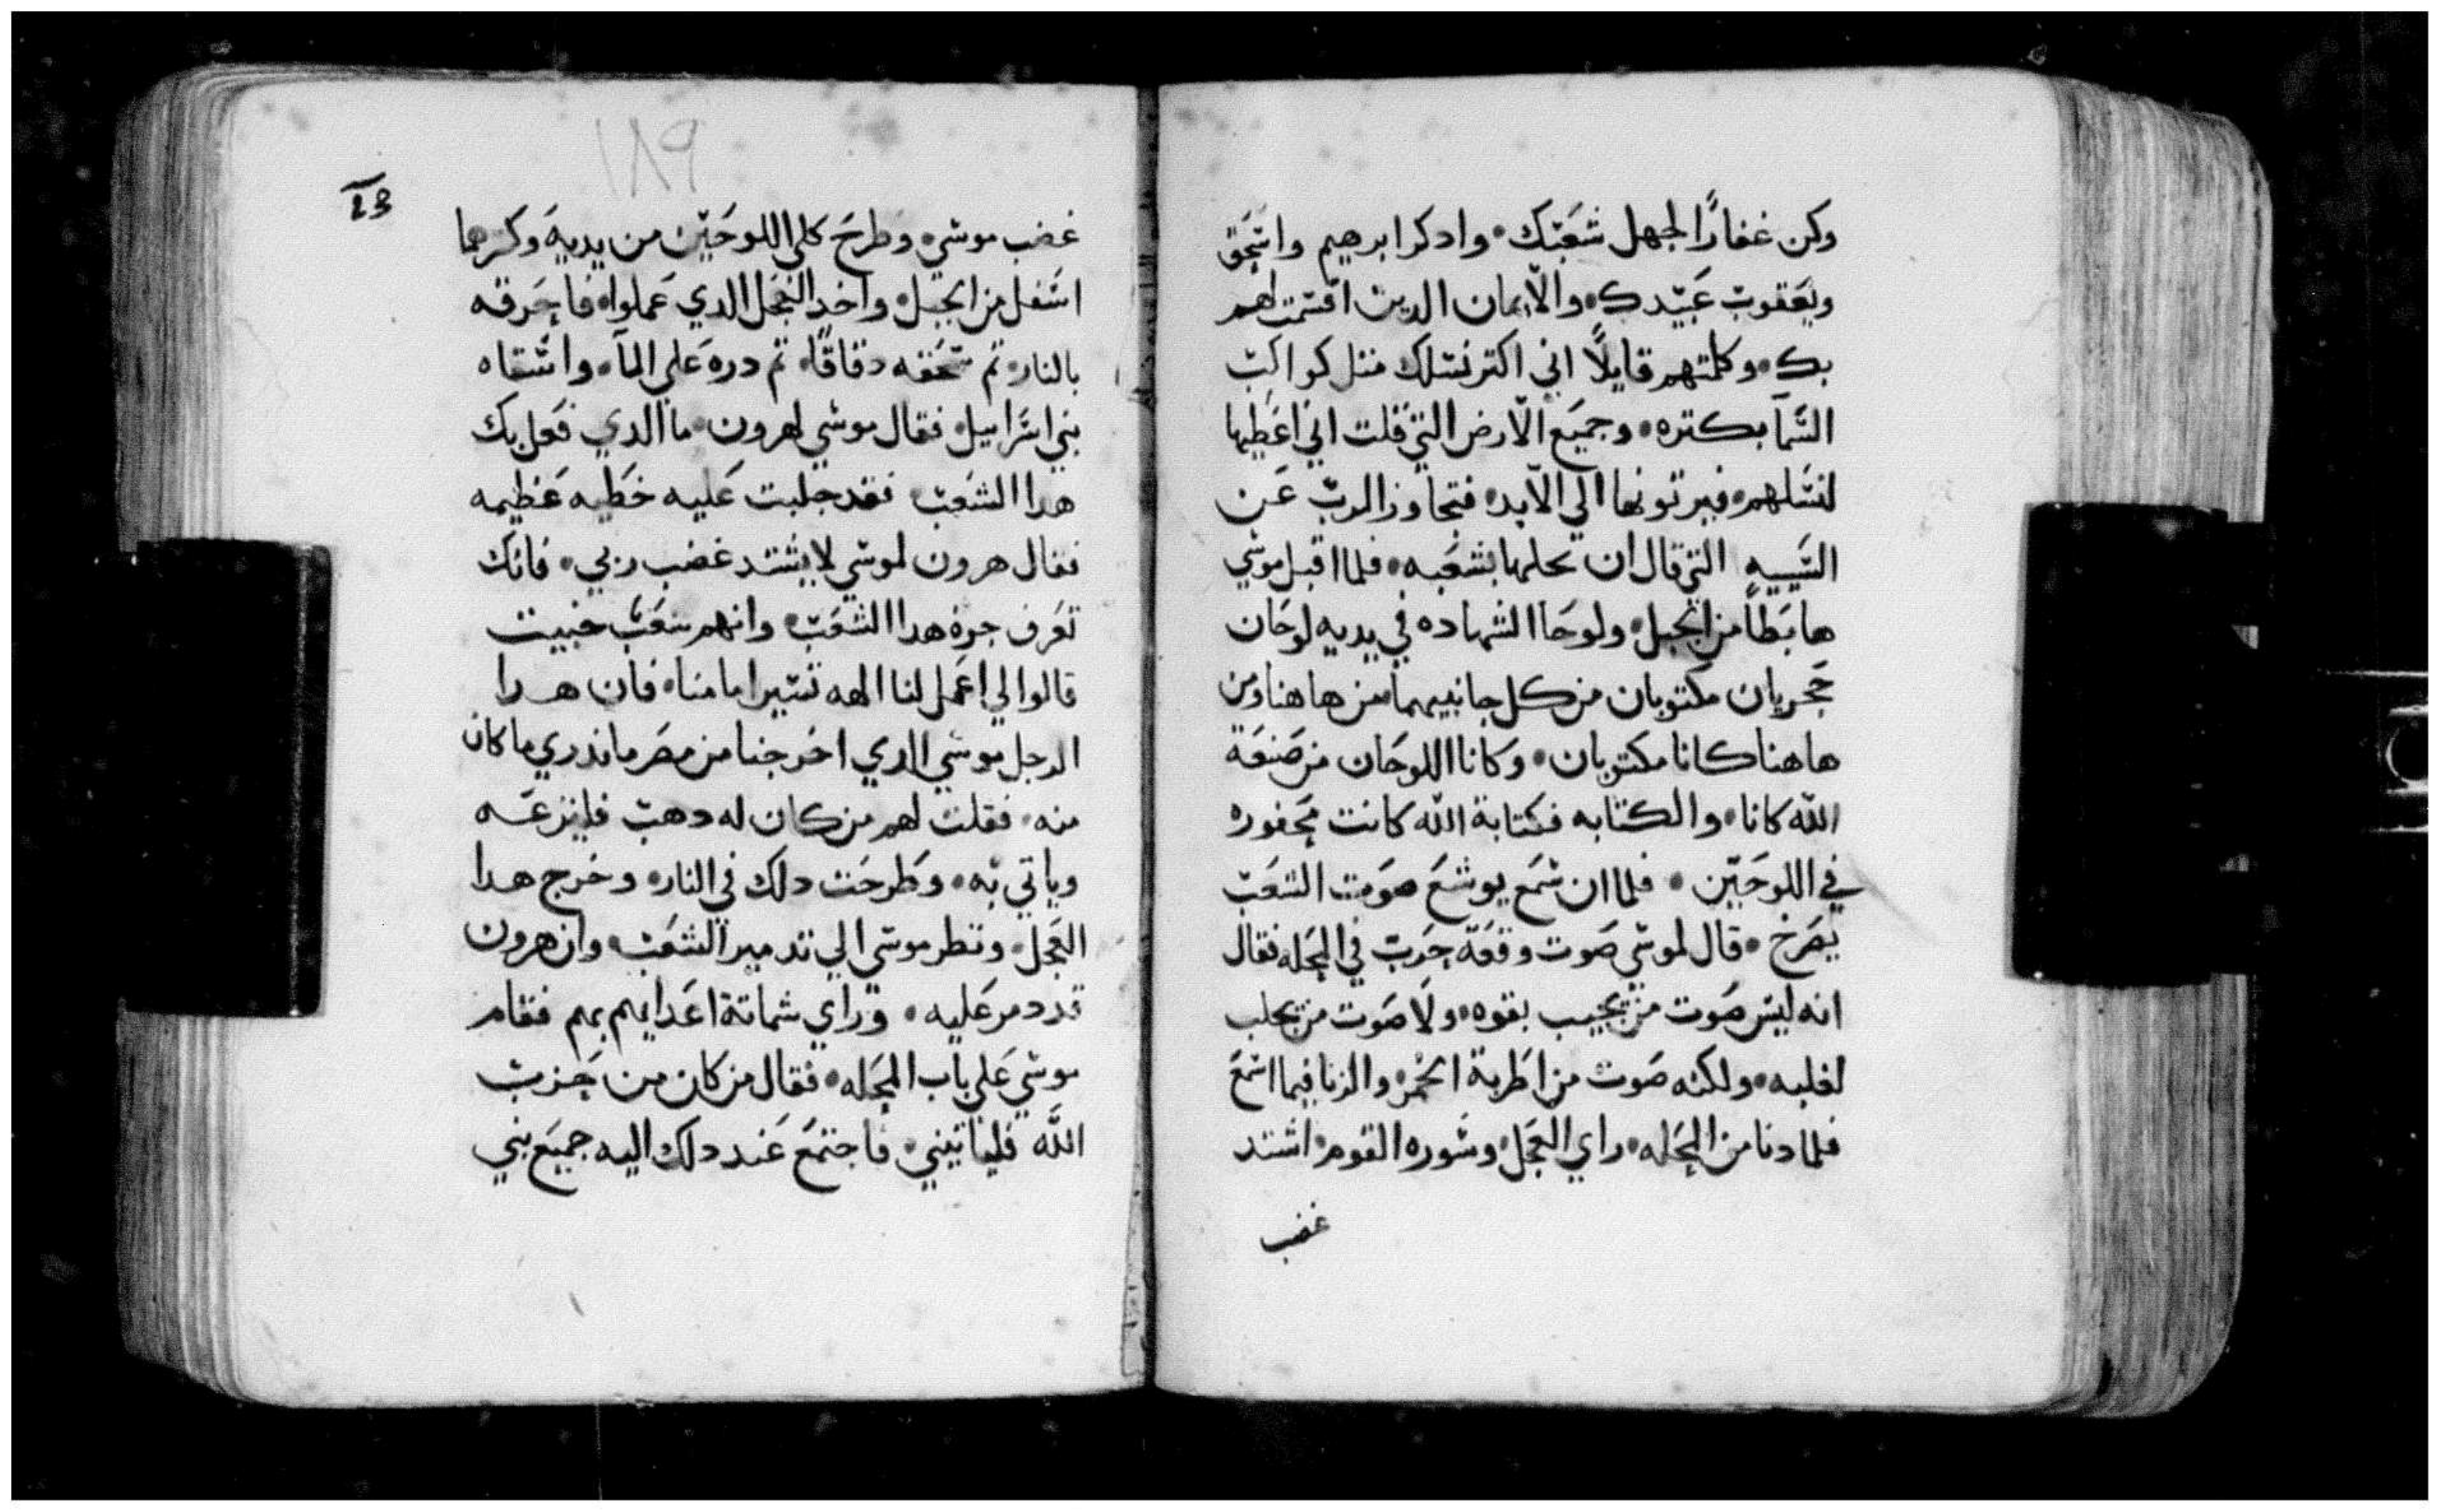 وكن غفارًا لجهل شعبك • وادكر ابرهيم واسحق
ويعقوب عبيدك • والايمان الدين اقسمت لهم
بك • وكلمتهم قايلاً اني اكتر نسلك متل كواكب
السمآ بكتره • وجميع الارض التي قلت اني اعطيها
لنسلهم • فيرتونها الي الابد • فتجاوز الرب عن
السييه التي قال ان يحلها بشعبه • فلما اقبل موسي
هابطاً من الجبل • ولوحا الشهاده في يديه لوحان
حجريان مكتوبان من كل جانبيهما من هاهنا ومن
هاهنا كانا مكتوبان • وكانا اللوحان من صنعة
الله كانا • والكتابه فكتابة الله كانت محفوره
في اللوحين • فلما ان سمع يوشع صوت الشعب
يصرخ • قال لموسي صوت وقعة حرب في المحله فقال
انه ليس صوت من يجيب بقوه • ولا صوت من يحلب
لغلبه • ولكنه صوت من اطربة الخمر • والزنا فيما اسمع
فلما دنا من المحله • راي العجل • وسوره القوم • اشتد
غضب
١٨٩
غضب موسي • وطرح كلي اللوحين من يديه وكسرهما
اسفل من الجبل • واخد العجل الدي عملوا • فاحرقه
بالنار • تم سحقه دقاقًا • تم دره علي المآ • واسقاه
بني اسراييل • فقال موسي لهرون • ما الدي فعل بك
هدا الشعب فقد جلبت عليه خطيه عظيمه
فقال هرون لموسي لا يشتد غضب ربي • فانك
تعرف جرة هدا الشعب • وانهم شعب خبيت
قالوا لي اعمل لنا الهه تسير امامنا • فان هدا
الرجل موسي الدي اخرجنا من مصر ما ندري ما كان
منه • فقلت لهم من كان له دهب فلينزعه
وياتي به • وطرحت دلك في النار • وخرج هدا
العجل • ونظر موسي الي تدمير الشعب • وان هرون
قد دمر عليه • وراي شماتة اعدايهم بهم فقام
موسي علي باب المحله • فقال من كان من حزب
الله فلياتيني • فاجتمع عند دلك اليه جميع بني